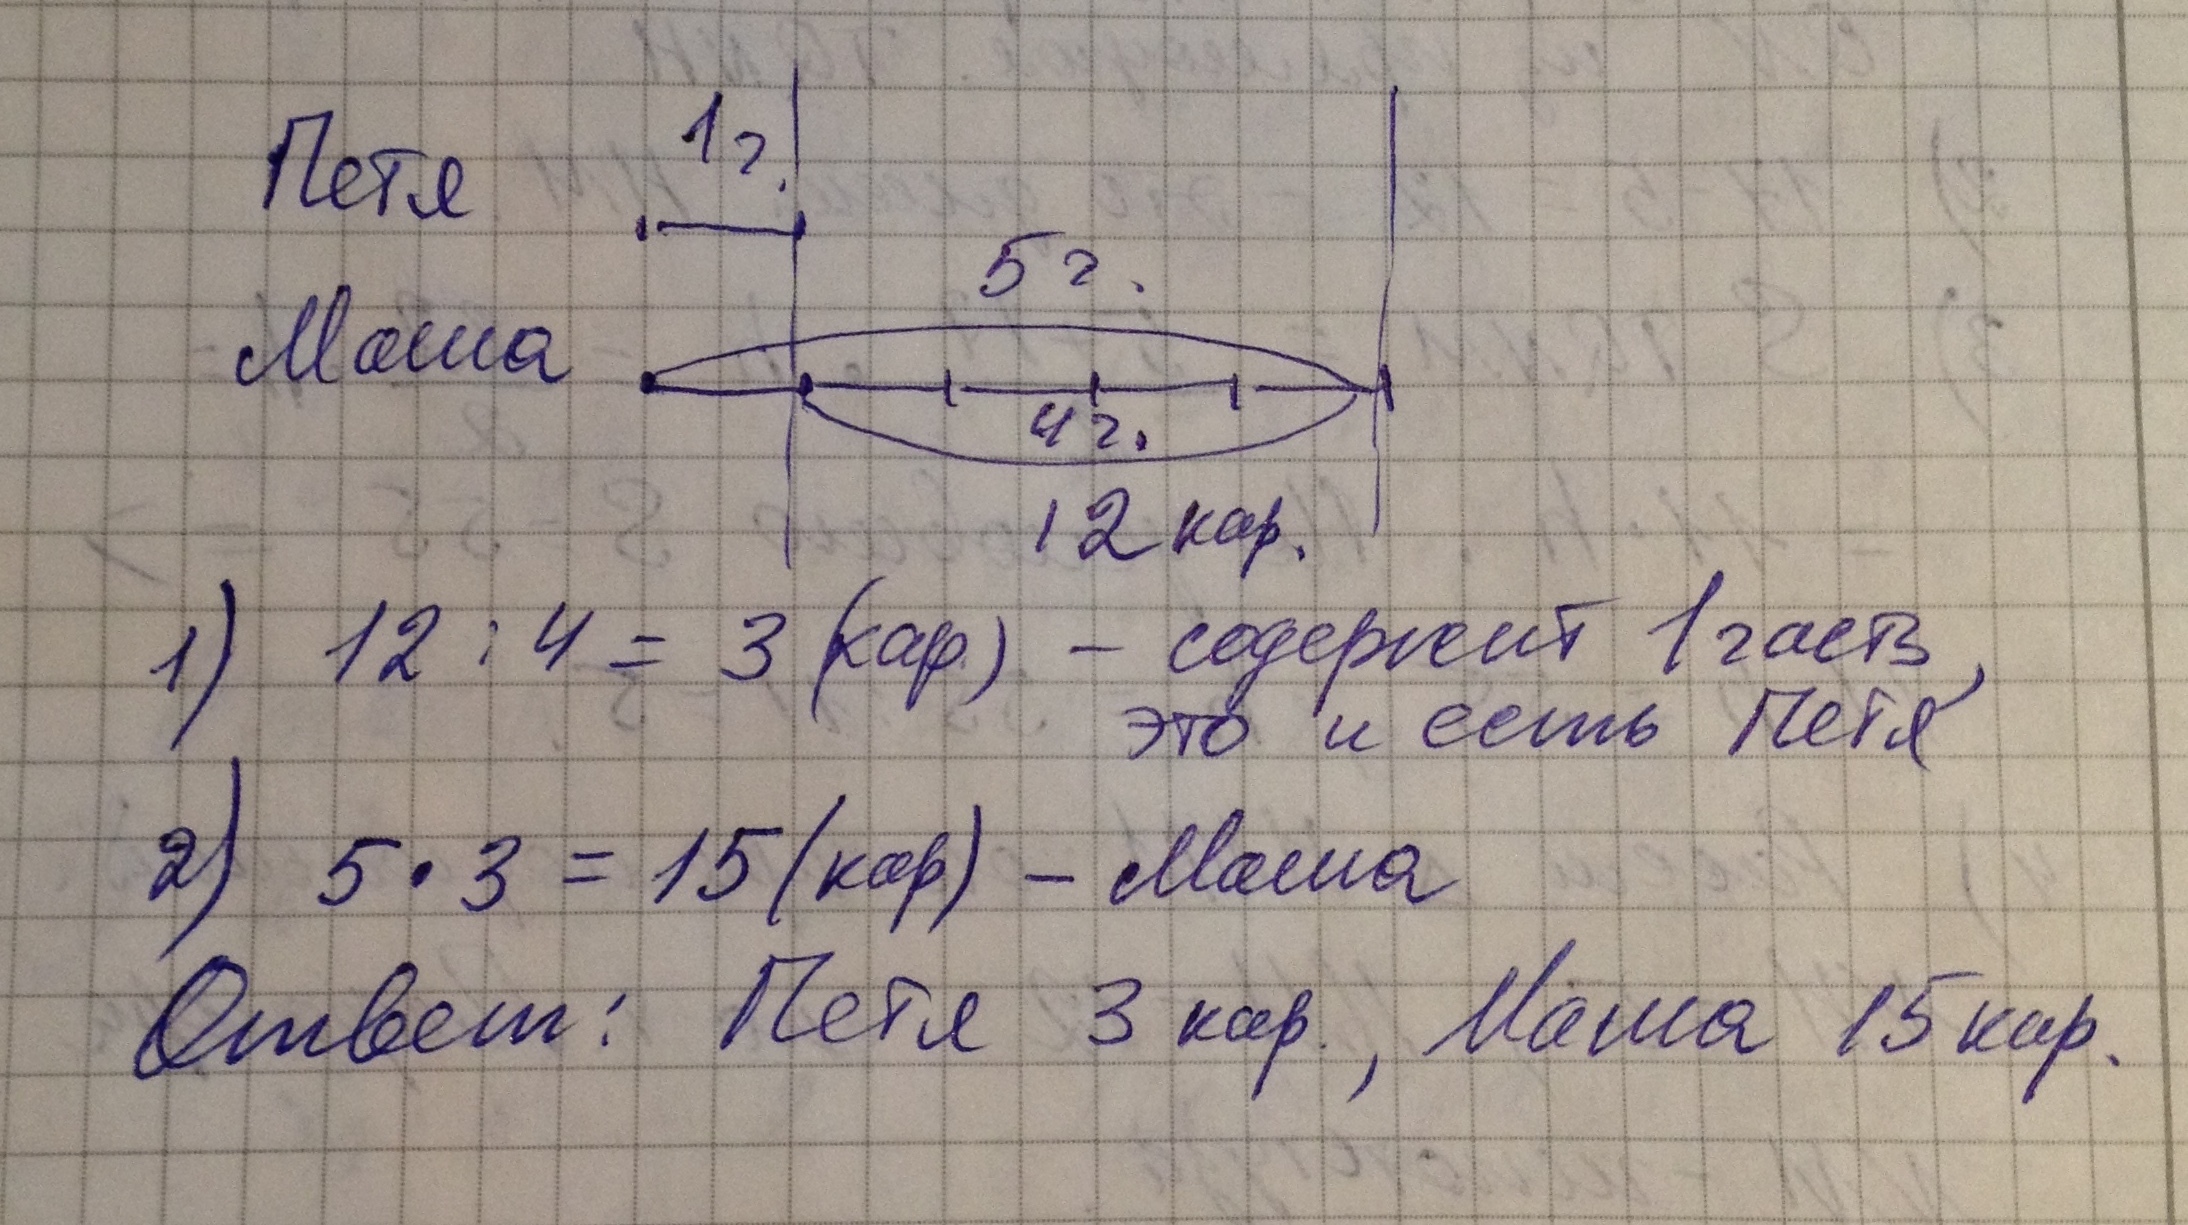 Петя 1 ч.
Маша 5 ч.
4 ч.
12 кар.
1) 12 : 4 = 3 (кар.) - содержит 1 часть,
это и есть Петя
2) 5 • 3 = 15 (кар) - Маша
Ответ: Петя 3 кар., Маша 15 кар.